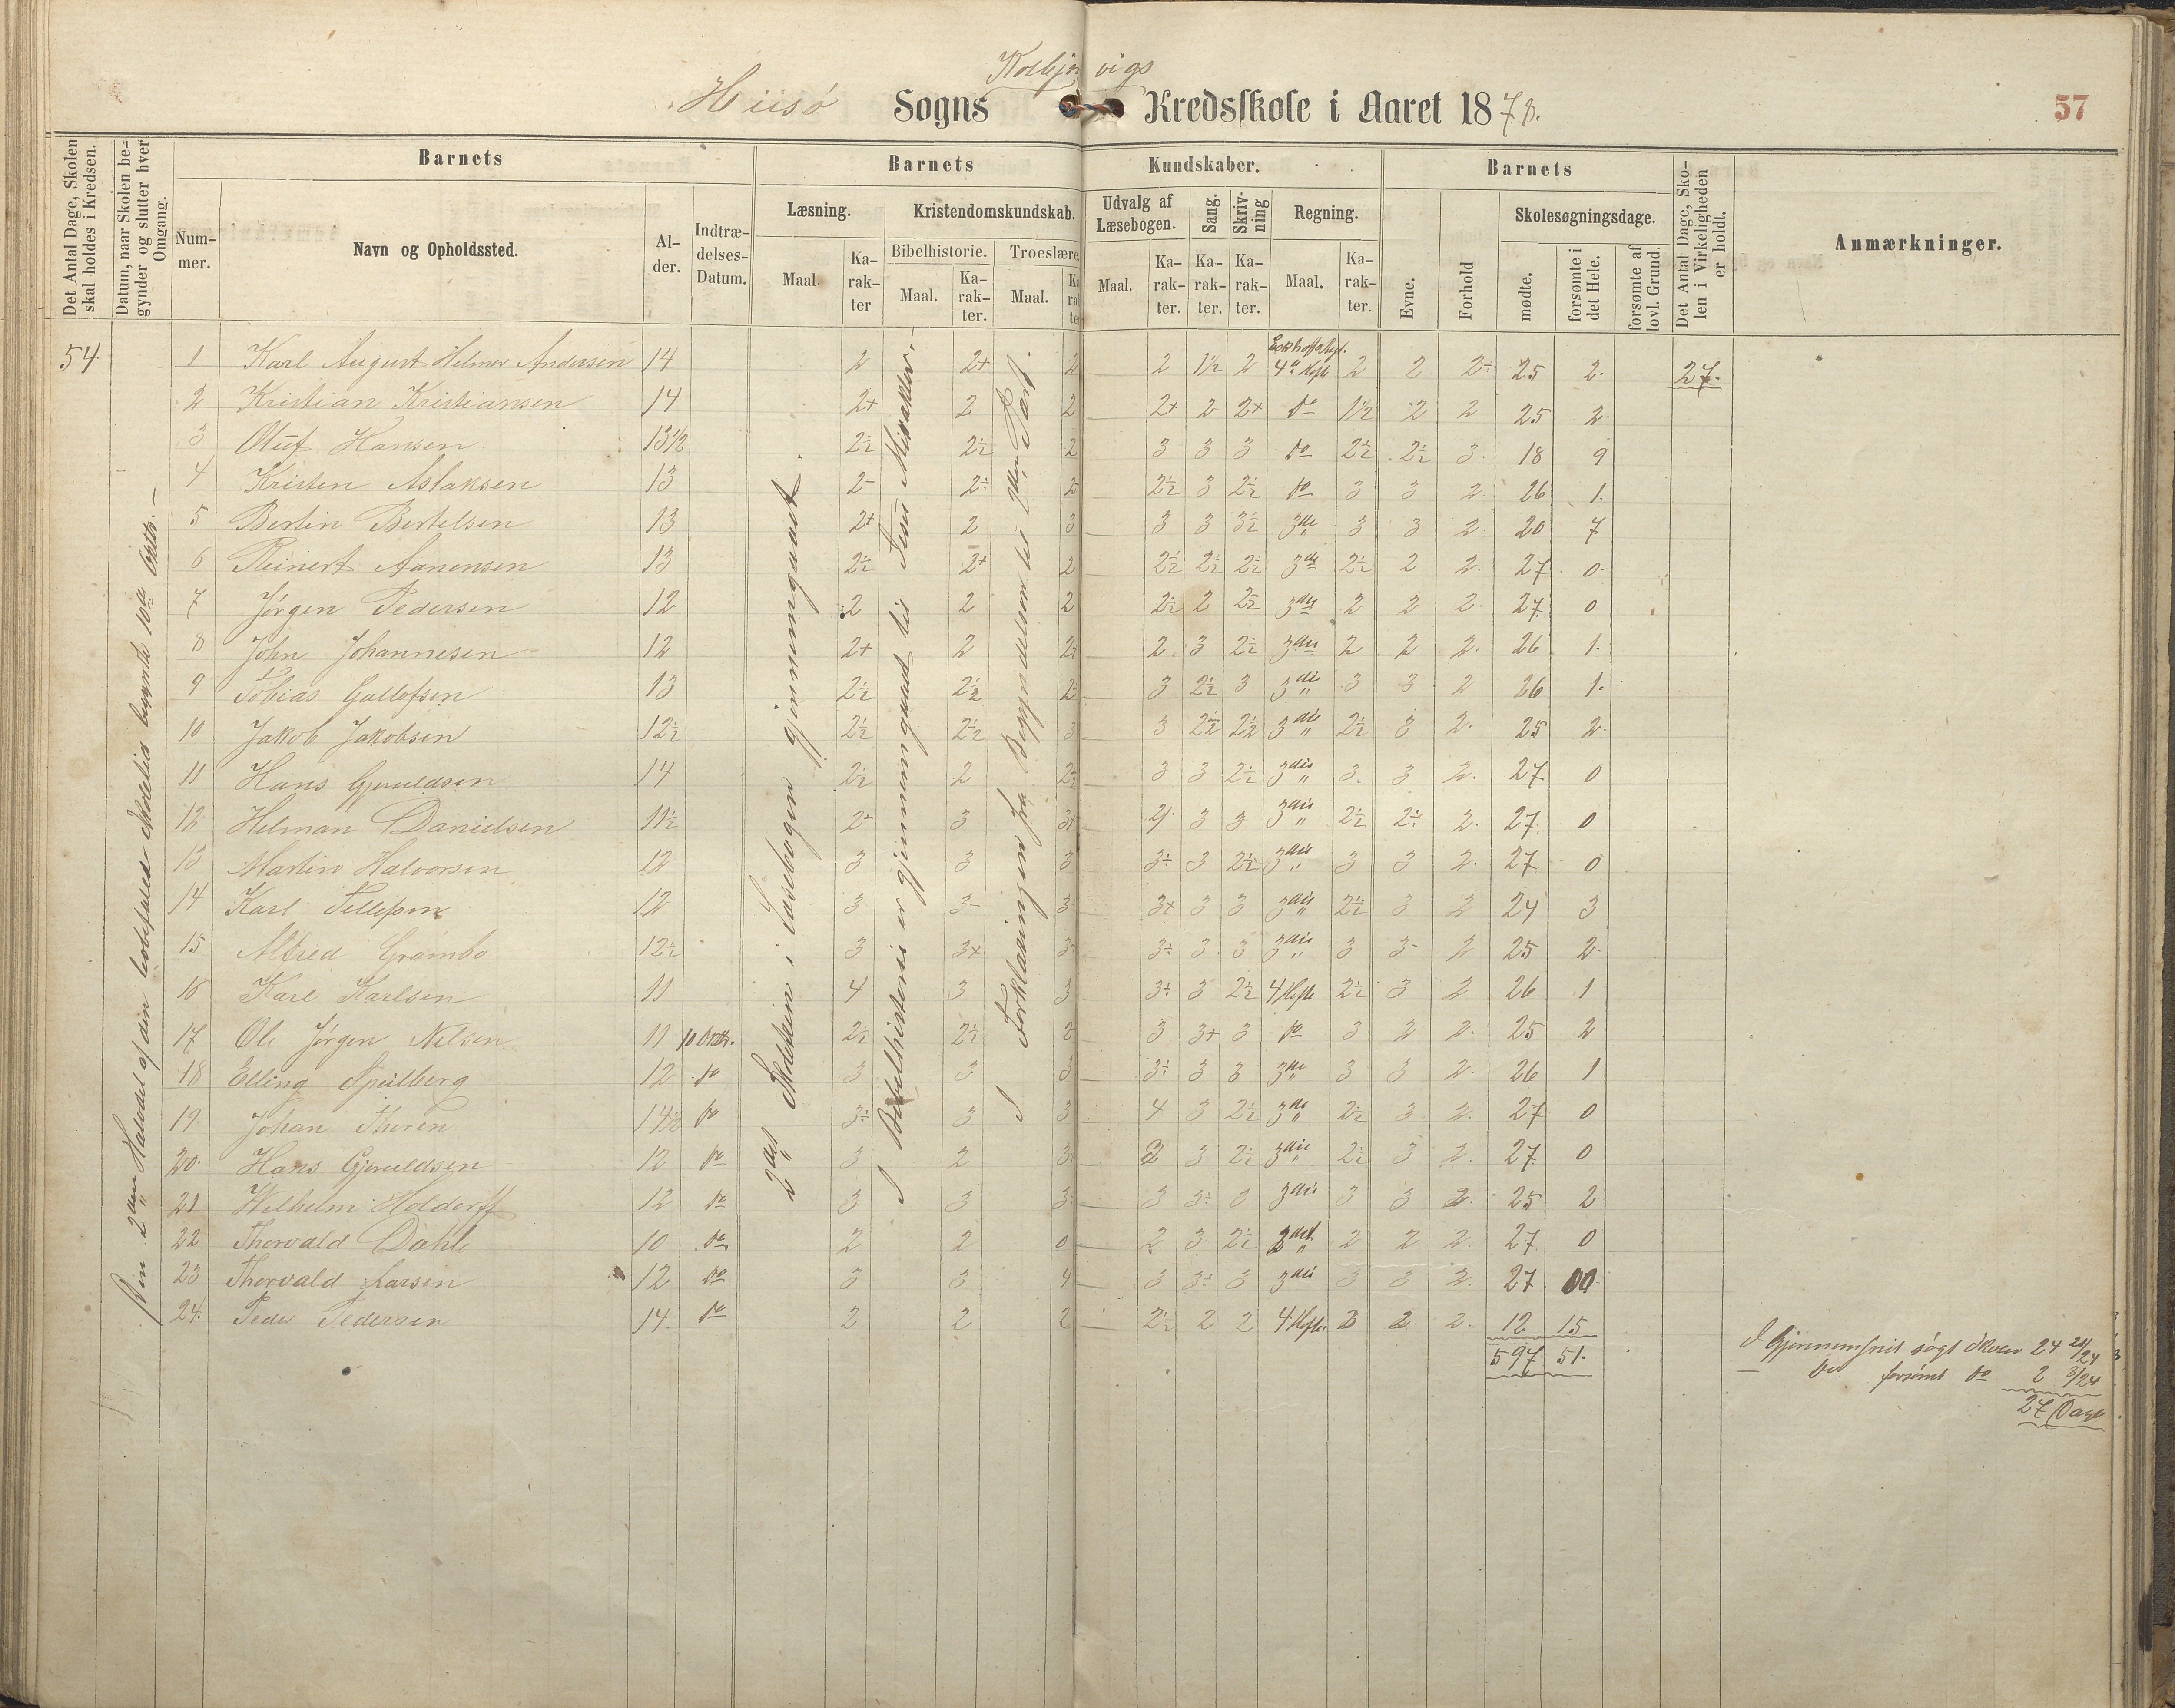 Kolbjørnvigs
Hiisø Sogns Kredsskole i Aaret 1878.
57
Det Antal Dage, Skolen skal holdes i Kredsen.
Datum, naar Skolen begynder og slutter hver Omgang.
Barnets
Nummer.
Navn og Opholdssted.
Alder.
Indtrædelses-Datum.
Barnets Kundskaber.
Læsning.
Maal.
Karakter
Kristendomskundskab.
Bibelhistorie.
Maal.
Karakter.
Troeslære
Maal.
Udvalg af Læsebogen.
Maal.
Karakter.
Sang.
Karakter.
Skrivning
Karakter.
Regning.
Maal.
Karakter.
Barnets
Evne.
Forhold
Skolesøgningsdage.
mødte.
forsømte i det Hele.
forsømte af lovl. Grund.
Det Antal Dage, Skolen i Virkeligheden er holdt.
Anmærkninger.
54
Den 2den Halvdel af den lovbefalede Skoletid begynte 10de Oktbr.
2det Skoletrin i Læsebogen gjennemgaaet.
I Bibelhistorie er gjennemgaaet til Jesu Mirakler.
I Forklaringen fra Begyndelsen til 2den Part.
1 Karl August Helmer Andersen 14 2 2+ 2 2 1½ 2 4de Hefte 2 2 2÷ 25 2. 27.
2 Kristian Kristiansen 14 2+ 2 2 2+ 2 2+ do 1½ 2 2 25 2
3 Oluf Hansen 13½ 2½ 2½ 2 3 3 3 do 2½ 2½ 3. 18 9
4 Kristen Aslaksen 13 2- 2÷ 2 2½ 3 2½ do 3 3 2 26 1.
5 Bertin Bertelsen 13 2+ 2 3 3 3 3½ 3die 3 3 2 20 7
6 Reinert Aanensen 13 2½ 2+ 2 2½ 2½ 2½ 3die 2½ 2 2 27 0.
7 Jørgen Pedersen 12 2 2 2 2½ 2 2½ 3die 2 2 2 27 0
8 John Johannesen 12 2+ 2 2+ 2 3 2½ 3die 2 2 2. 26 1.
9 Tobias Gallofsen 13 2½ 2½ 2 3 2½ 3 3die 3 3 2 26 1.
10 Jakob Jakobsen 12½ 2½ 2½ 3 3 2½ 2½ 3die 2½ 3 2. 25 2
11 Hans Gjeruldsen 14 2½ 2 2½ 3 3 2½ 3die 3 3 2. 27 0
12 Helman Danielsen 11½ 2+ 3 3+ 2 3 3 3die 2½ 2÷ 2. 27 0
13 Martin Halvorsen 12 3 3 3 3÷ 3 2½ 3die 3 3 2. 27 0
14 Karl Tellefsen 12 3 3- 3 3+ 3 3 3die 2½ 3 2 24 3
15 Alfred Grømbo 12½ 3 3+ 3 3÷ 3 3 3die 3 3- 2 25 2
16 Karl Karlsen 11 4 3 3 3÷ 3 2½ 4 Hefte 2½ 3 2 26 1
17 Ole Jørgen Nilsen 11 10 Oktbr. 2½ 2½ 2 3 3+ 3 do 3 2 2. 25 2
18 Elling Spilberg 12 do 3 3 3 3÷ 3 3 3die 3 3 2. 26 1
19 Johan Thoren 14½ do 3÷ 3 3 4 3 2½ 3die 2½ 3 2. 27 0
20. Hans Gjeruldsen 12 do 3 2 3 3 3 2½ 3die 2½ 3 2. 27 0
21 Wilhelm Holdorff 12 do 3 3 3 3 3÷ 3 3die 3 3 2. 25 2
22 Thorvald Dahle 10 do 2 2 0 2 3 2½ 2det 2 2 2. 27 0
23 Thorvald Larsen 12 do 3 3 4 3 3÷ 3 3die 3 3 2. 27 0
24. Peder Pedersen 14 do 2 2 2 2½ 2 2 4 Hefte 2 2. 12 15
597 51.
I Gjennemsnit søgt Skolen 24 21/24
forsømt do 2 3/24
27 Dage